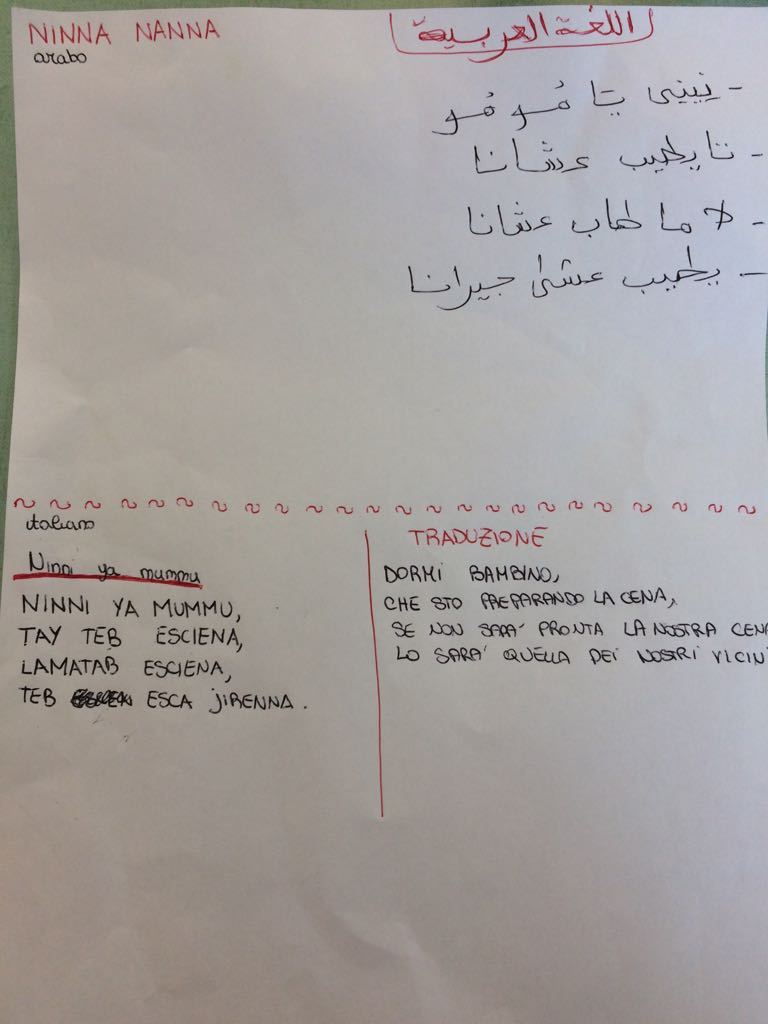 NINNA NANNA
arabo
اللغة العربية
- نيني يا مُو مُو
- تا يطيب عشانا
- لا ما طاب عشانا
- يطيب عشى جيرانا
italiano
Ninni ya mummu
NINNI YA MUMMU,
TAY TEB ESCIENA,
LAMATAB ESCIENA,
TEB ESCA JIRENNA.
TRADUZIONE
DORMI BAMBINO,
CHE STO PREPARANDO LA CENA,
SE NON SARA' PRONTA LA NOSTRA CENA
LO SARA' QUELLA DEI NOSTRI VICINI